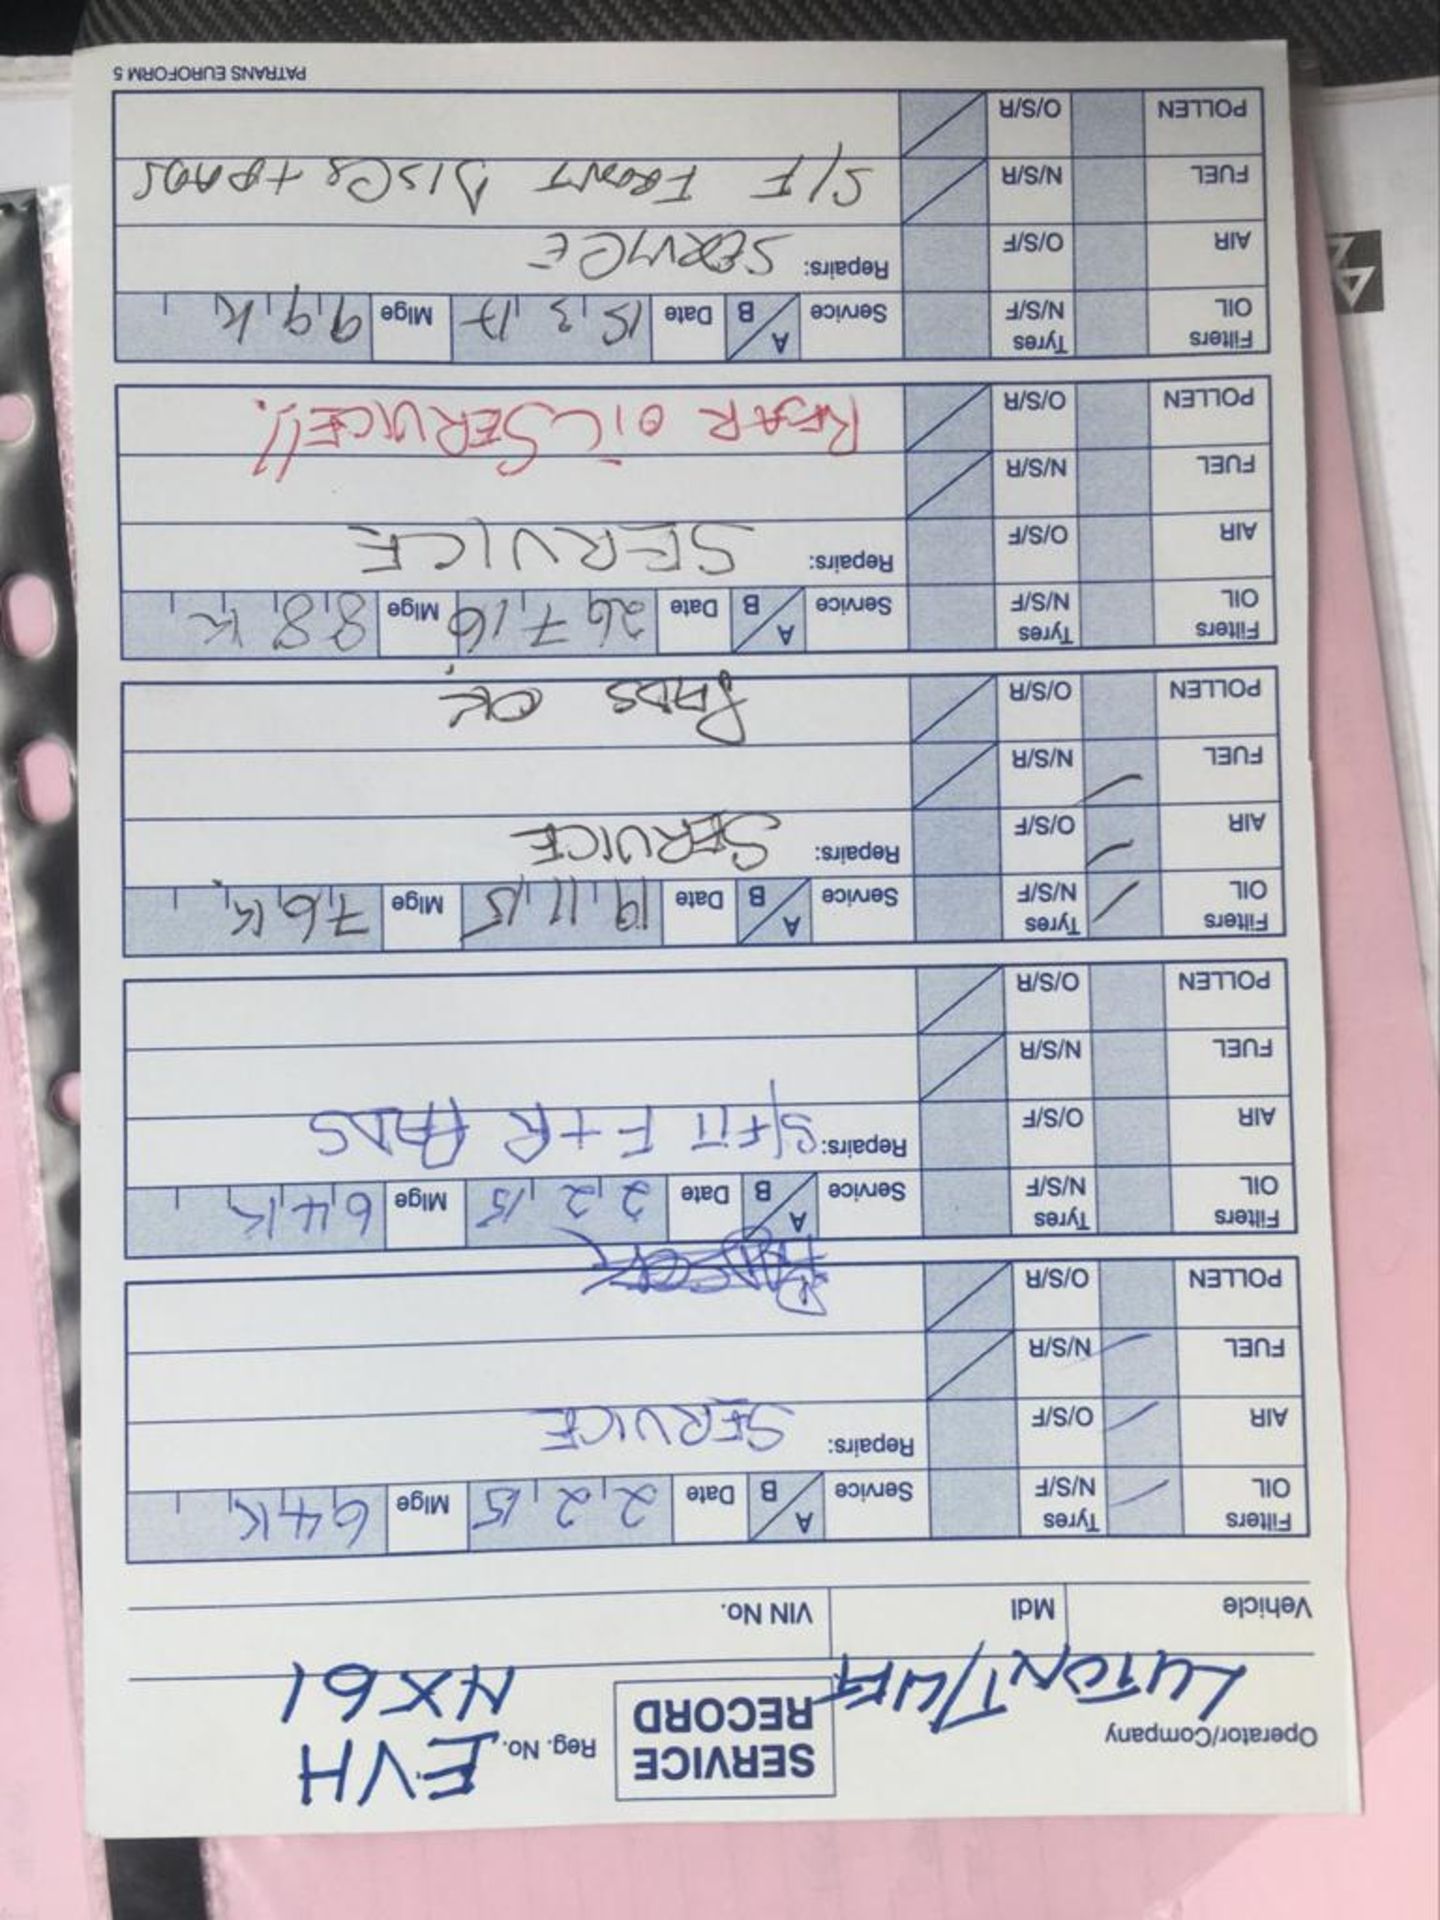 Operator/Company
LUTON T/LIFT
SERVICE
RECORD
Reg. No. EVH
HX61
Vehicle Mdl VIN No.
Filters Tyres Service A/B Date 2 2 15 Mlge 64K
OIL N/S/F
AIR O/S/F Repairs: SERVICE
FUEL N/S/R
POLLEN O/S/R PADS OK
Filters Tyres Service A/B Date 2 2 15 Mlge 64K
OIL N/S/F
AIR O/S/F Repairs: S/FIT F+R PADS
FUEL N/S/R
POLLEN O/S/R
Filters Tyres Service A/B Date 19 11 15 Mlge 76K
OIL N/S/F
AIR O/S/F Repairs: SERVICE
FUEL N/S/R
POLLEN O/S/R PADS OK
Filters Tyres Service A/B Date 26 7 16 Mlge 88K
OIL N/S/F
AIR O/S/F Repairs: SERVICE
FUEL N/S/R
POLLEN O/S/R REAR OIL SERVICE!!
Filters Tyres Service A/B Date 15 3 17 Mlge 99K
OIL N/S/F
AIR O/S/F Repairs: SERVICE
FUEL N/S/R S/F FRONT DISCS + PADS
POLLEN O/S/R
PATRANS EUROFORM 5